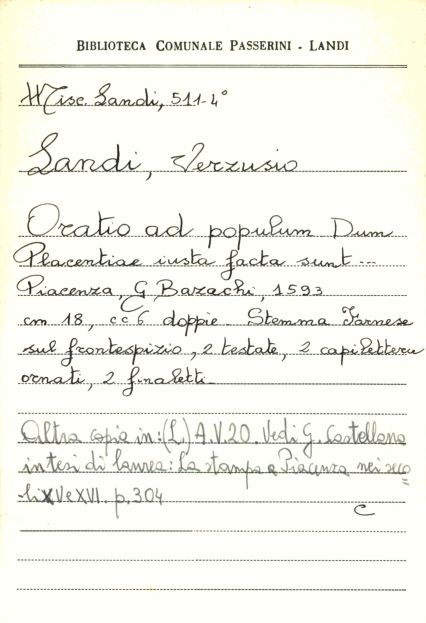 BIBLIOTECA COMUNALE PASSERINI - LANDI
Misc. Landi, 511-4°
Landi, Verzusio
Oratio ad populum Dum
Placentiae iusta facta sunt ...
Piacenza, G. Bazachi, 1593
cm 18, cc 6 doppie. Stemma Farnese
sul frontespizio, 2 testate, 2 capilettera
ornati, 2 finaletti.
Altra copia in: (L) A.V.20. Vedi G. Castellana
in tesi di laurea: La stampa a Piacenza nei seco=
li XV e XVI. p. 304
C